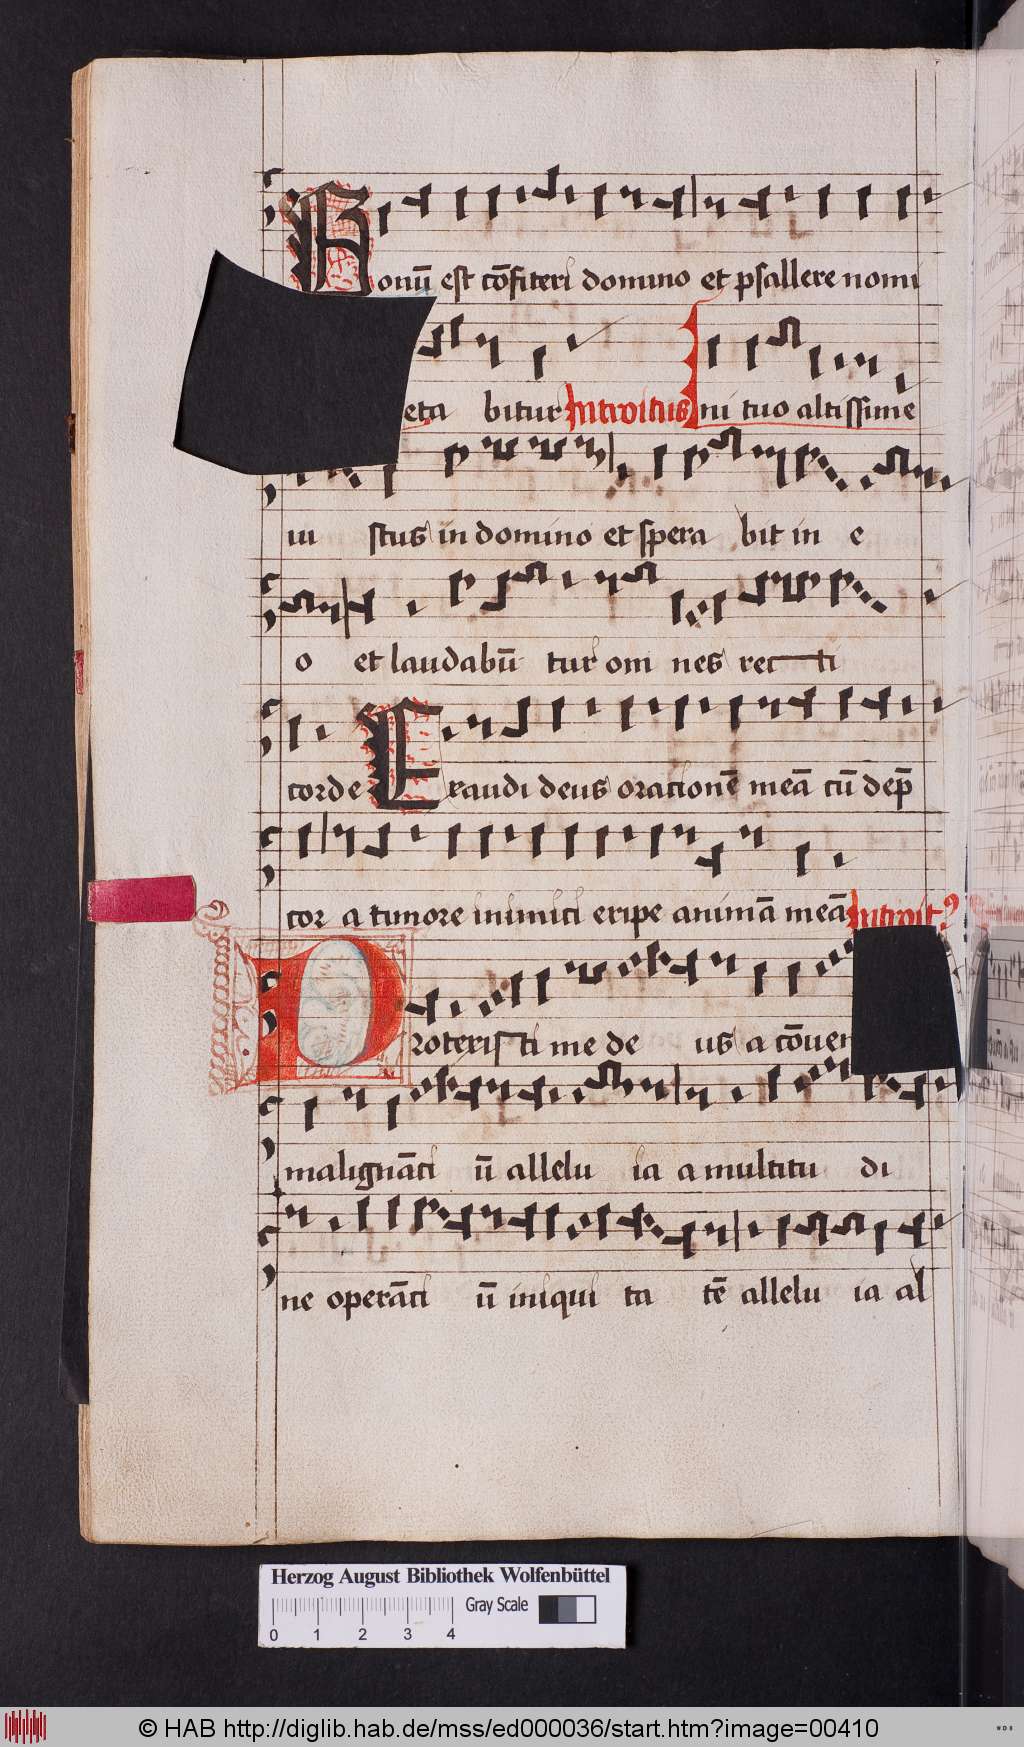 Bonū est cōfiteri domino et psallere nomi
eta bitur Introitus ni tuo altissime
iu stus in domino et spera bit in e
o et laudabū tur om nes rec ti
corde Exaudi deus orationē meā cū dep̄
cor a timore inimici eripe animā meā Introit9
Proteris ti me de us a cōven
malignāti ū allelu ia a multitu di
ne operāti ū iniqui ta tē allelu ia al
Herzog August Bibliothek Wolfenbüttel
Gray Scale
0 1 2 3 4
© HAB http://diglib.hab.de/mss/ed000036/start.htm?image=00410